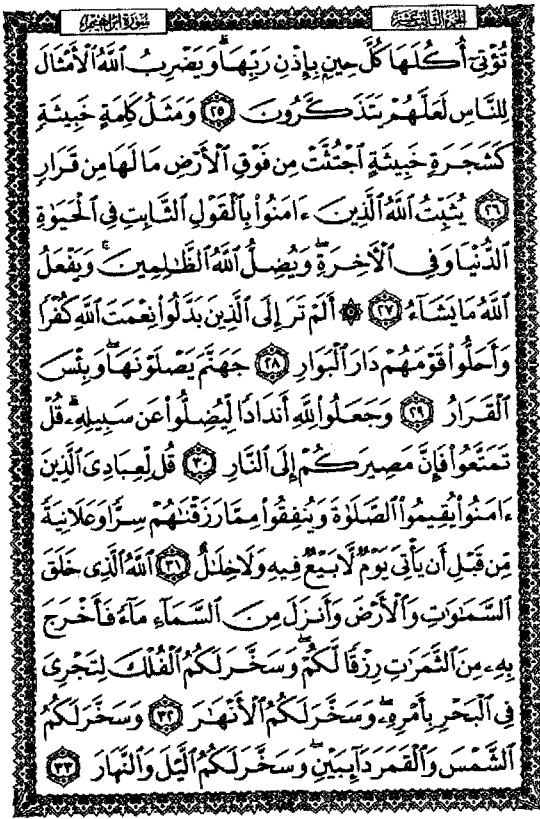 الجزء الثالث عشر
سورة ابراهيم
تُؤْتِىٓ أُكُلَهَا كُلَّ حِينٍۭ بِإِذْنِ رَبِّهَا ۗ وَيَضْرِبُ ٱللَّهُ ٱلْأَمْثَالَ
لِلنَّاسِ لَعَلَّهُمْ يَتَذَكَّرُونَ ٢٥ وَمَثَلُ كَلِمَةٍ خَبِيثَةٍ
كَشَجَرَةٍ خَبِيثَةٍ ٱجْتُثَّتْ مِن فَوْقِ ٱلْأَرْضِ مَا لَهَا مِن قَرَارٍ
٢٦ يُثَبِّتُ ٱللَّهُ ٱلَّذِينَ ءَامَنُوا۟ بِٱلْقَوْلِ ٱلثَّابِتِ فِى ٱلْحَيَوٰةِ
ٱلدُّنْيَا وَفِى ٱلْءَاخِرَةِ ۖ وَيُضِلُّ ٱللَّهُ ٱلظَّٰلِمِينَ ۚ وَيَفْعَلُ
ٱللَّهُ مَا يَشَآءُ ٢٧ ۞ أَلَمْ تَرَ إِلَى ٱلَّذِينَ بَدَّلُوا۟ نِعْمَتَ ٱللَّهِ كُفْرًا
وَأَحَلُّوا۟ قَوْمَهُمْ دَارَ ٱلْبَوَارِ ٢٨ جَهَنَّمَ يَصْلَوْنَهَا ۖ وَبِئْسَ
ٱلْقَرَارُ ٢٩ وَجَعَلُوا۟ لِلَّهِ أَندَادًا لِّيُضِلُّوا۟ عَن سَبِيلِهِۦ ۗ قُلْ
تَمَتَّعُوا۟ فَإِنَّ مَصِيرَكُمْ إِلَى ٱلنَّارِ ٣٠ قُل لِّعِبَادِىَ ٱلَّذِينَ
ءَامَنُوا۟ يُقِيمُوا۟ ٱلصَّلَوٰةَ وَيُنفِقُوا۟ مِمَّا رَزَقْنَٰهُمْ سِرًّا وَعَلَانِيَةً
مِّن قَبْلِ أَن يَأْتِىَ يَوْمٌ لَّا بَيْعٌ فِيهِ وَلَا خِلَٰلٌ ٣١ ٱللَّهُ ٱلَّذِى خَلَقَ
ٱلسَّمَٰوَٰتِ وَٱلْأَرْضَ وَأَنزَلَ مِنَ ٱلسَّمَآءِ مَآءً فَأَخْرَجَ
بِهِۦ مِنَ ٱلثَّمَرَٰتِ رِزْقًا لَّكُمْ ۖ وَسَخَّرَ لَكُمُ ٱلْفُلْكَ لِتَجْرِىَ
فِى ٱلْبَحْرِ بِأَمْرِهِۦ ۖ وَسَخَّرَ لَكُمُ ٱلْأَنْهَٰرَ ٣٢ وَسَخَّرَ لَكُمُ
ٱلشَّمْسَ وَٱلْقَمَرَ دَآئِبَيْنِ ۖ وَسَخَّرَ لَكُمُ ٱلَّيْلَ وَٱلنَّهَارَ ٣٣